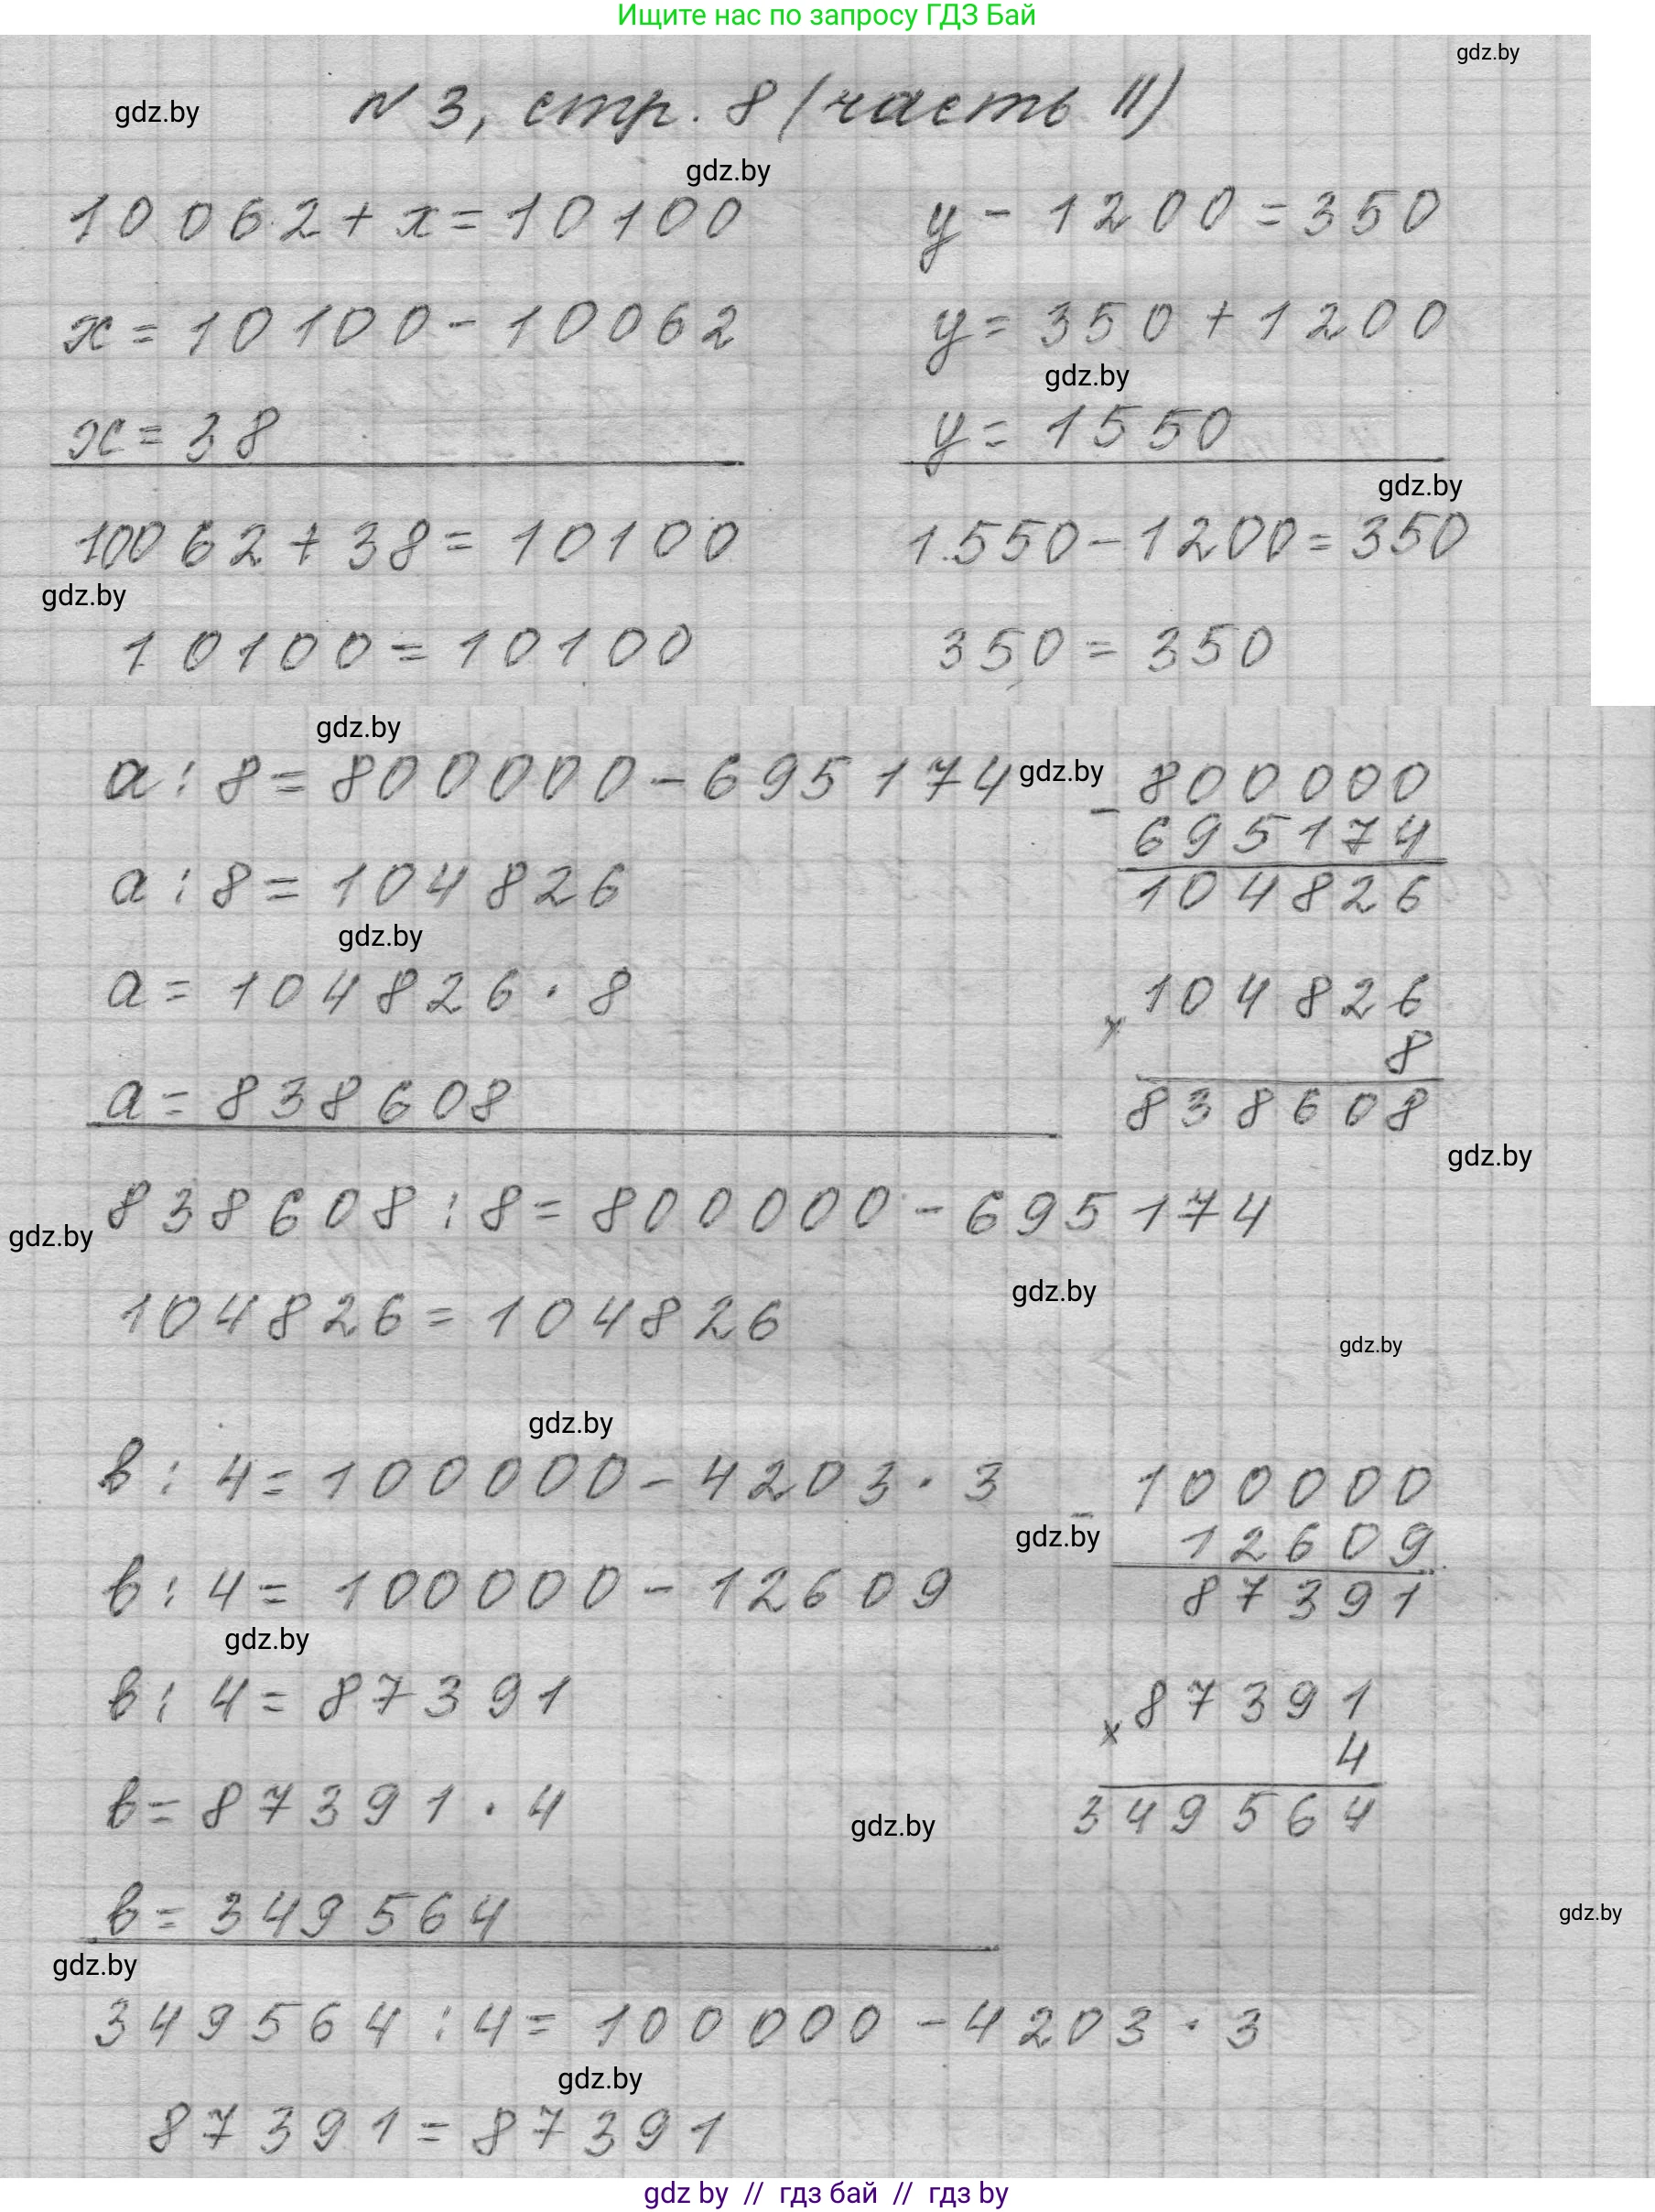 Ищите нас по запросу ГДЗ Бай
gdz.by
gdz.by
N 3, стр. 8 (часть II)
gdz.by
10062 + x = 10100
y - 1200 = 350
x = 10100 - 10062
y = 350 + 1200
gdz.by
x = 38
y = 1550
gdz.by
10062 + 38 = 10100
1550 - 1200 = 350
gdz.by
10100 = 10100
350 = 350
gdz.by
a : 8 = 800000 - 695174
gdz.by
- 800000
695174
104826
a : 8 = 104826
gdz.by
a = 104826 · 8
104826
x 8
838608
a = 838608
gdz.by
838608 : 8 = 800000 - 695174
gdz.by
gdz.by
104826 = 104826
gdz.by
gdz.by
в : 4 = 100000 - 4203 · 3
- 100000
gdz.by
12609
87391
в : 4 = 100000 - 12609
gdz.by
в : 4 = 87391
87391
x 4
349564
в = 87391 · 4
gdz.by
в = 349564
gdz.by
gdz.by
349564 : 4 = 100000 - 4203 · 3
gdz.by
87391 = 87391
gdz by // гдз бай // гдз by